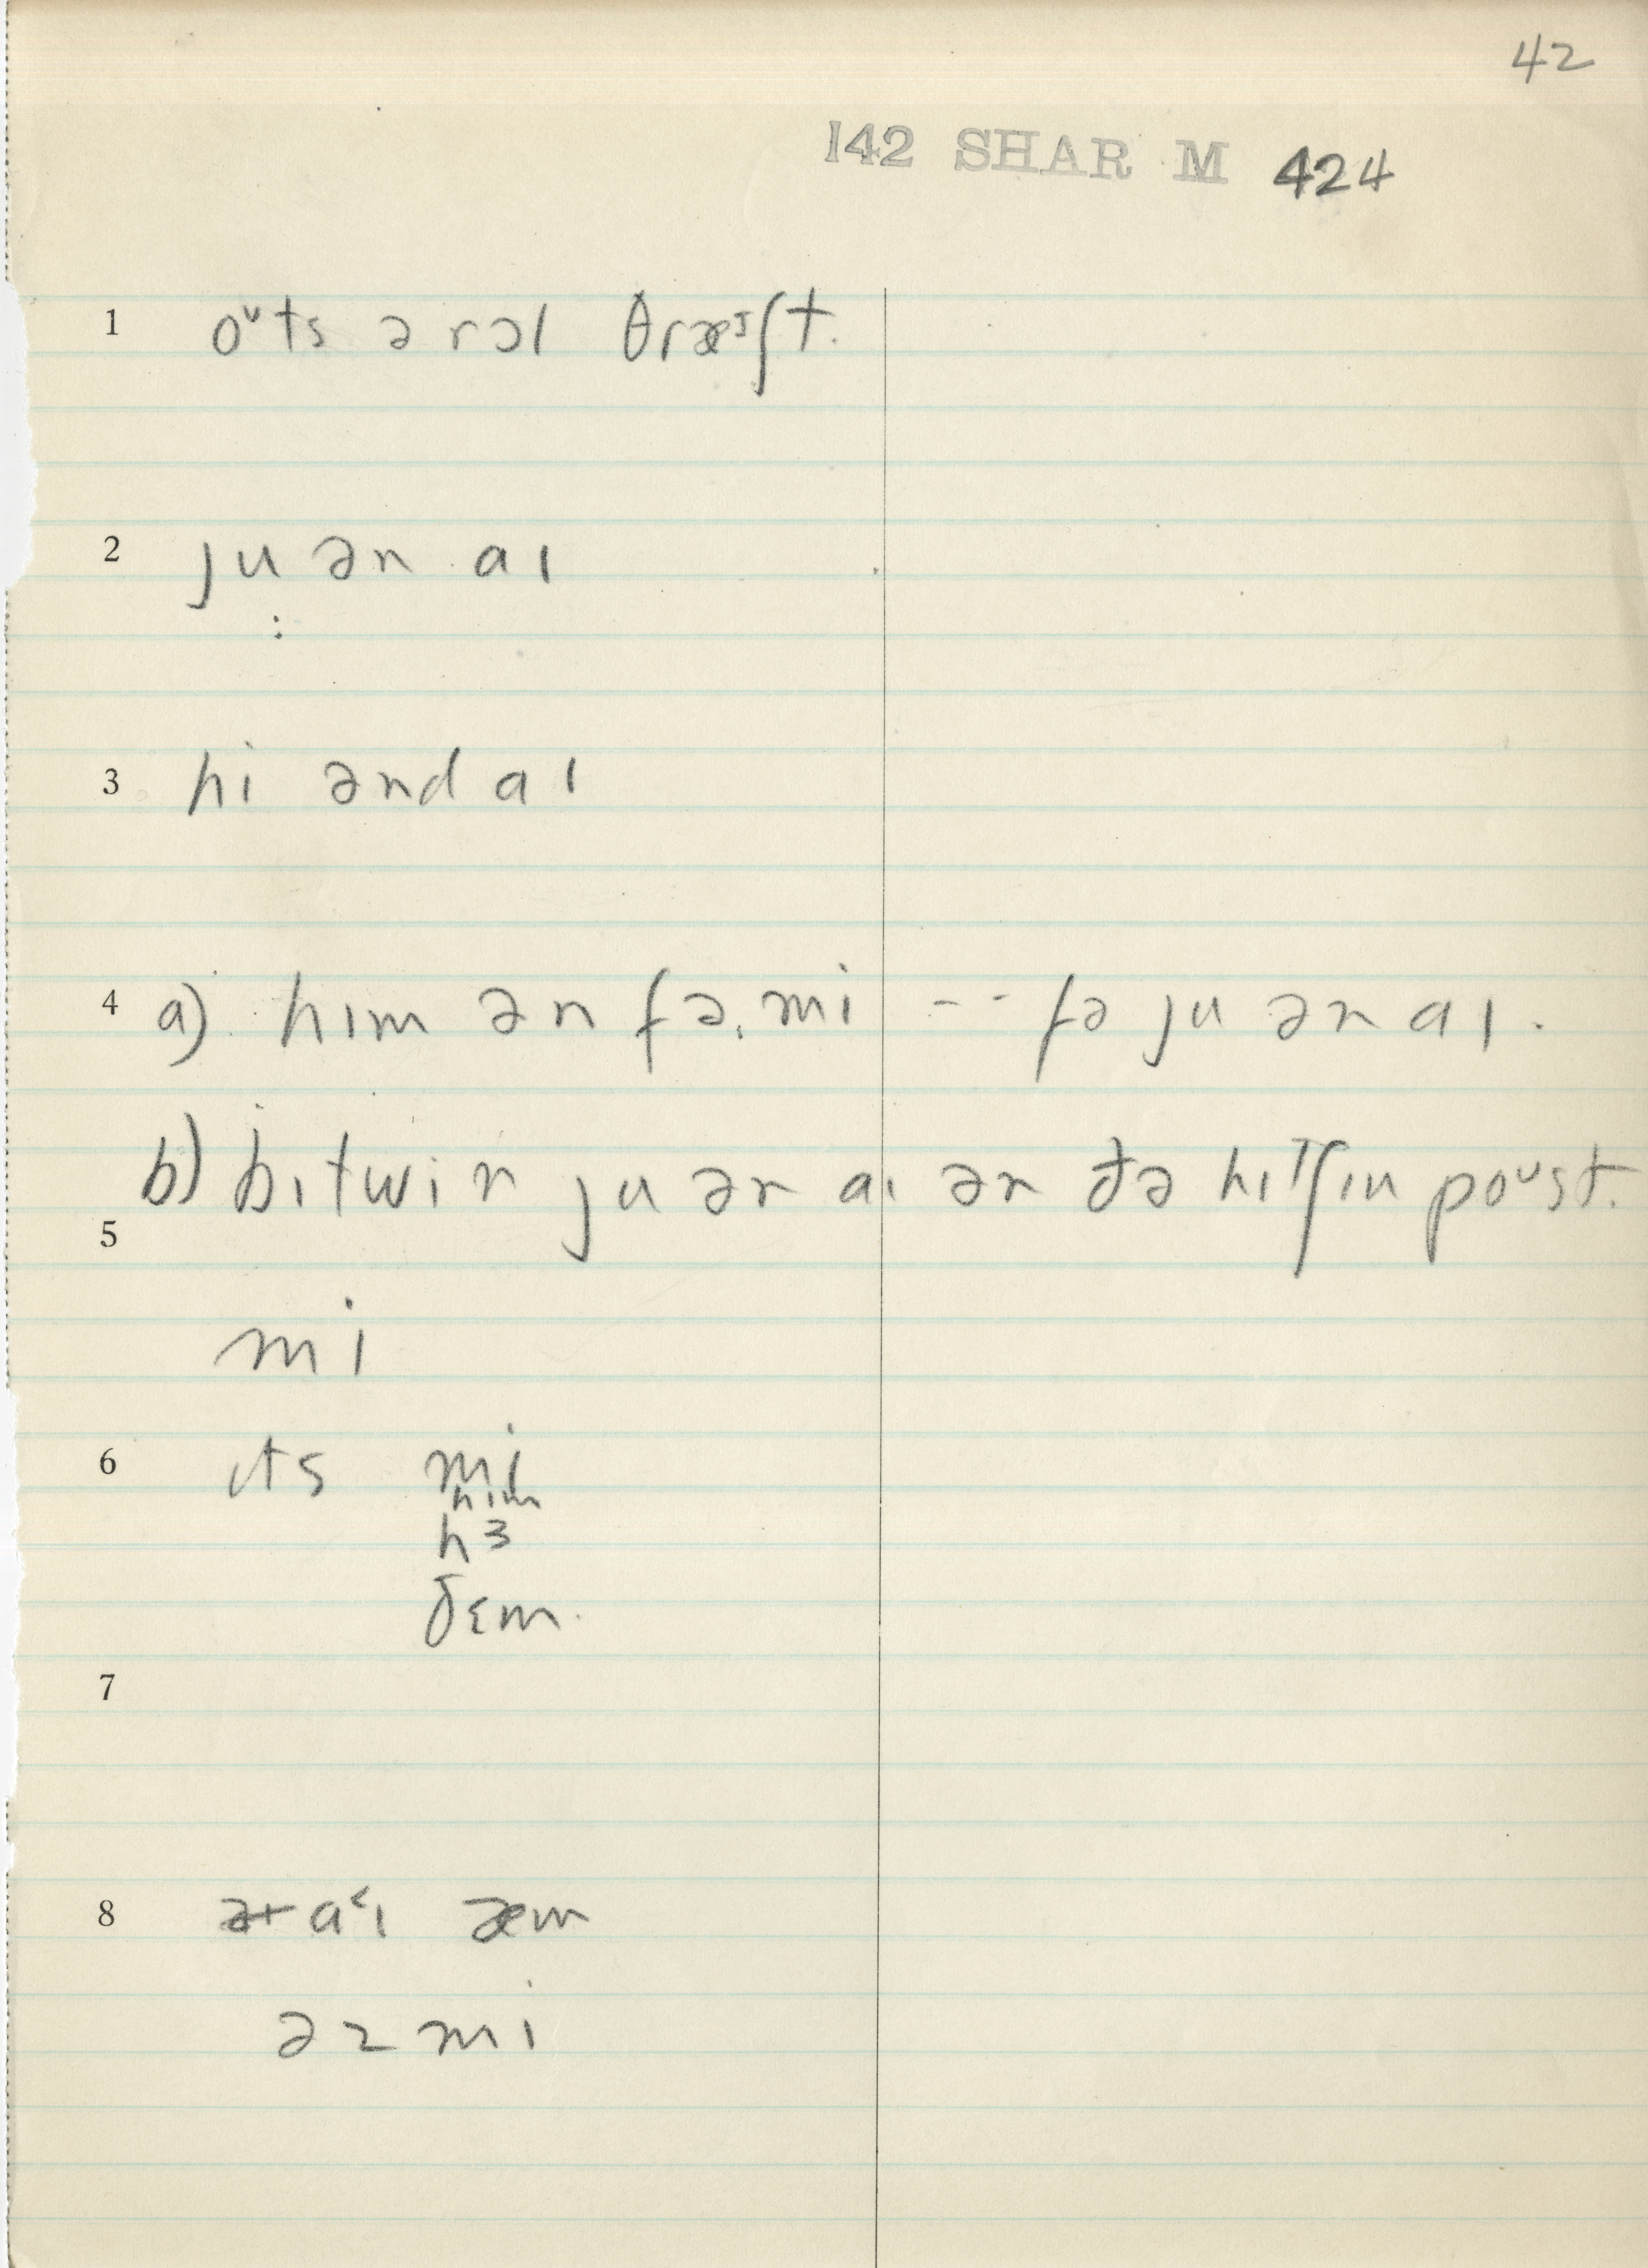 42
142 SHAR M 424
1 oᶷts ə rɔl θræᴵʃt.
2 ju ən aɪ
:
3 hi ənd aɪ
4 a) hɪm ən fə, mi -- fə ju ən aɪ.
b) bɪtwin ju ən aɪ ən ðə hɪᵀʃɪn poᶷst.
5
mi
6 ɪts mi
hɪm
hɜ
ðɛm.
7
8 a˂ɪ æm
əz mi